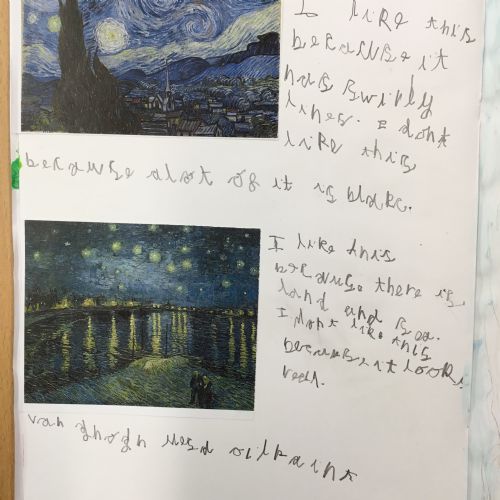 I like this
because it
has swirly
lines. I dont
like this
because alot of it is blake.
I like this
because there is
land and sea.
I dont like this
because it looks
reel.
van ghogh used oil paint